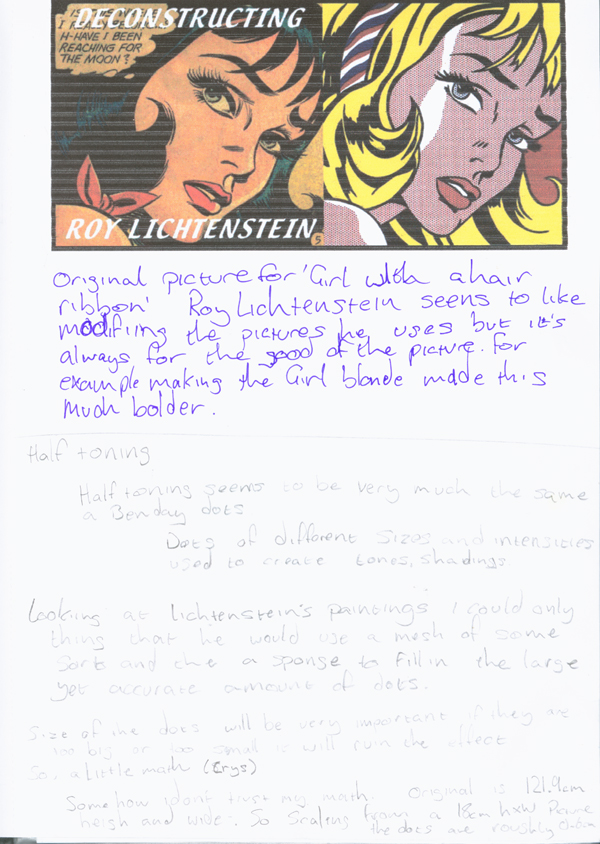 DECONSTRUCTING
H-HAVE I BEEN
REACHING FOR
THE MOON?
ROY LICHTENSTEIN
5
Original picture for 'Girl with a hair
ribbon' Roy Lichtenstein seems to like
modifiing the pictures he uses but it's
always for the good of the picture. for
example making the Girl blonde made this
much bolder.
Half toning
Half toning seems to be very much the same
a Benday dots
Dots of different sizes and intensities
used to create tones, shadings
Looking at lichtenstein's paintings I could only
thing that he would use a mesh of some
sort and the a sponge to fill in the large
yet accurate amount of dots.
Size of the dots will be very important if they are
too big or too small it will ruin the effect
So. a little math (crys)
Somehow i dont trust my math. Original is 121.9cm
heigh and wide. So scaling from a 18cm hxw Picture
the dots are roughly